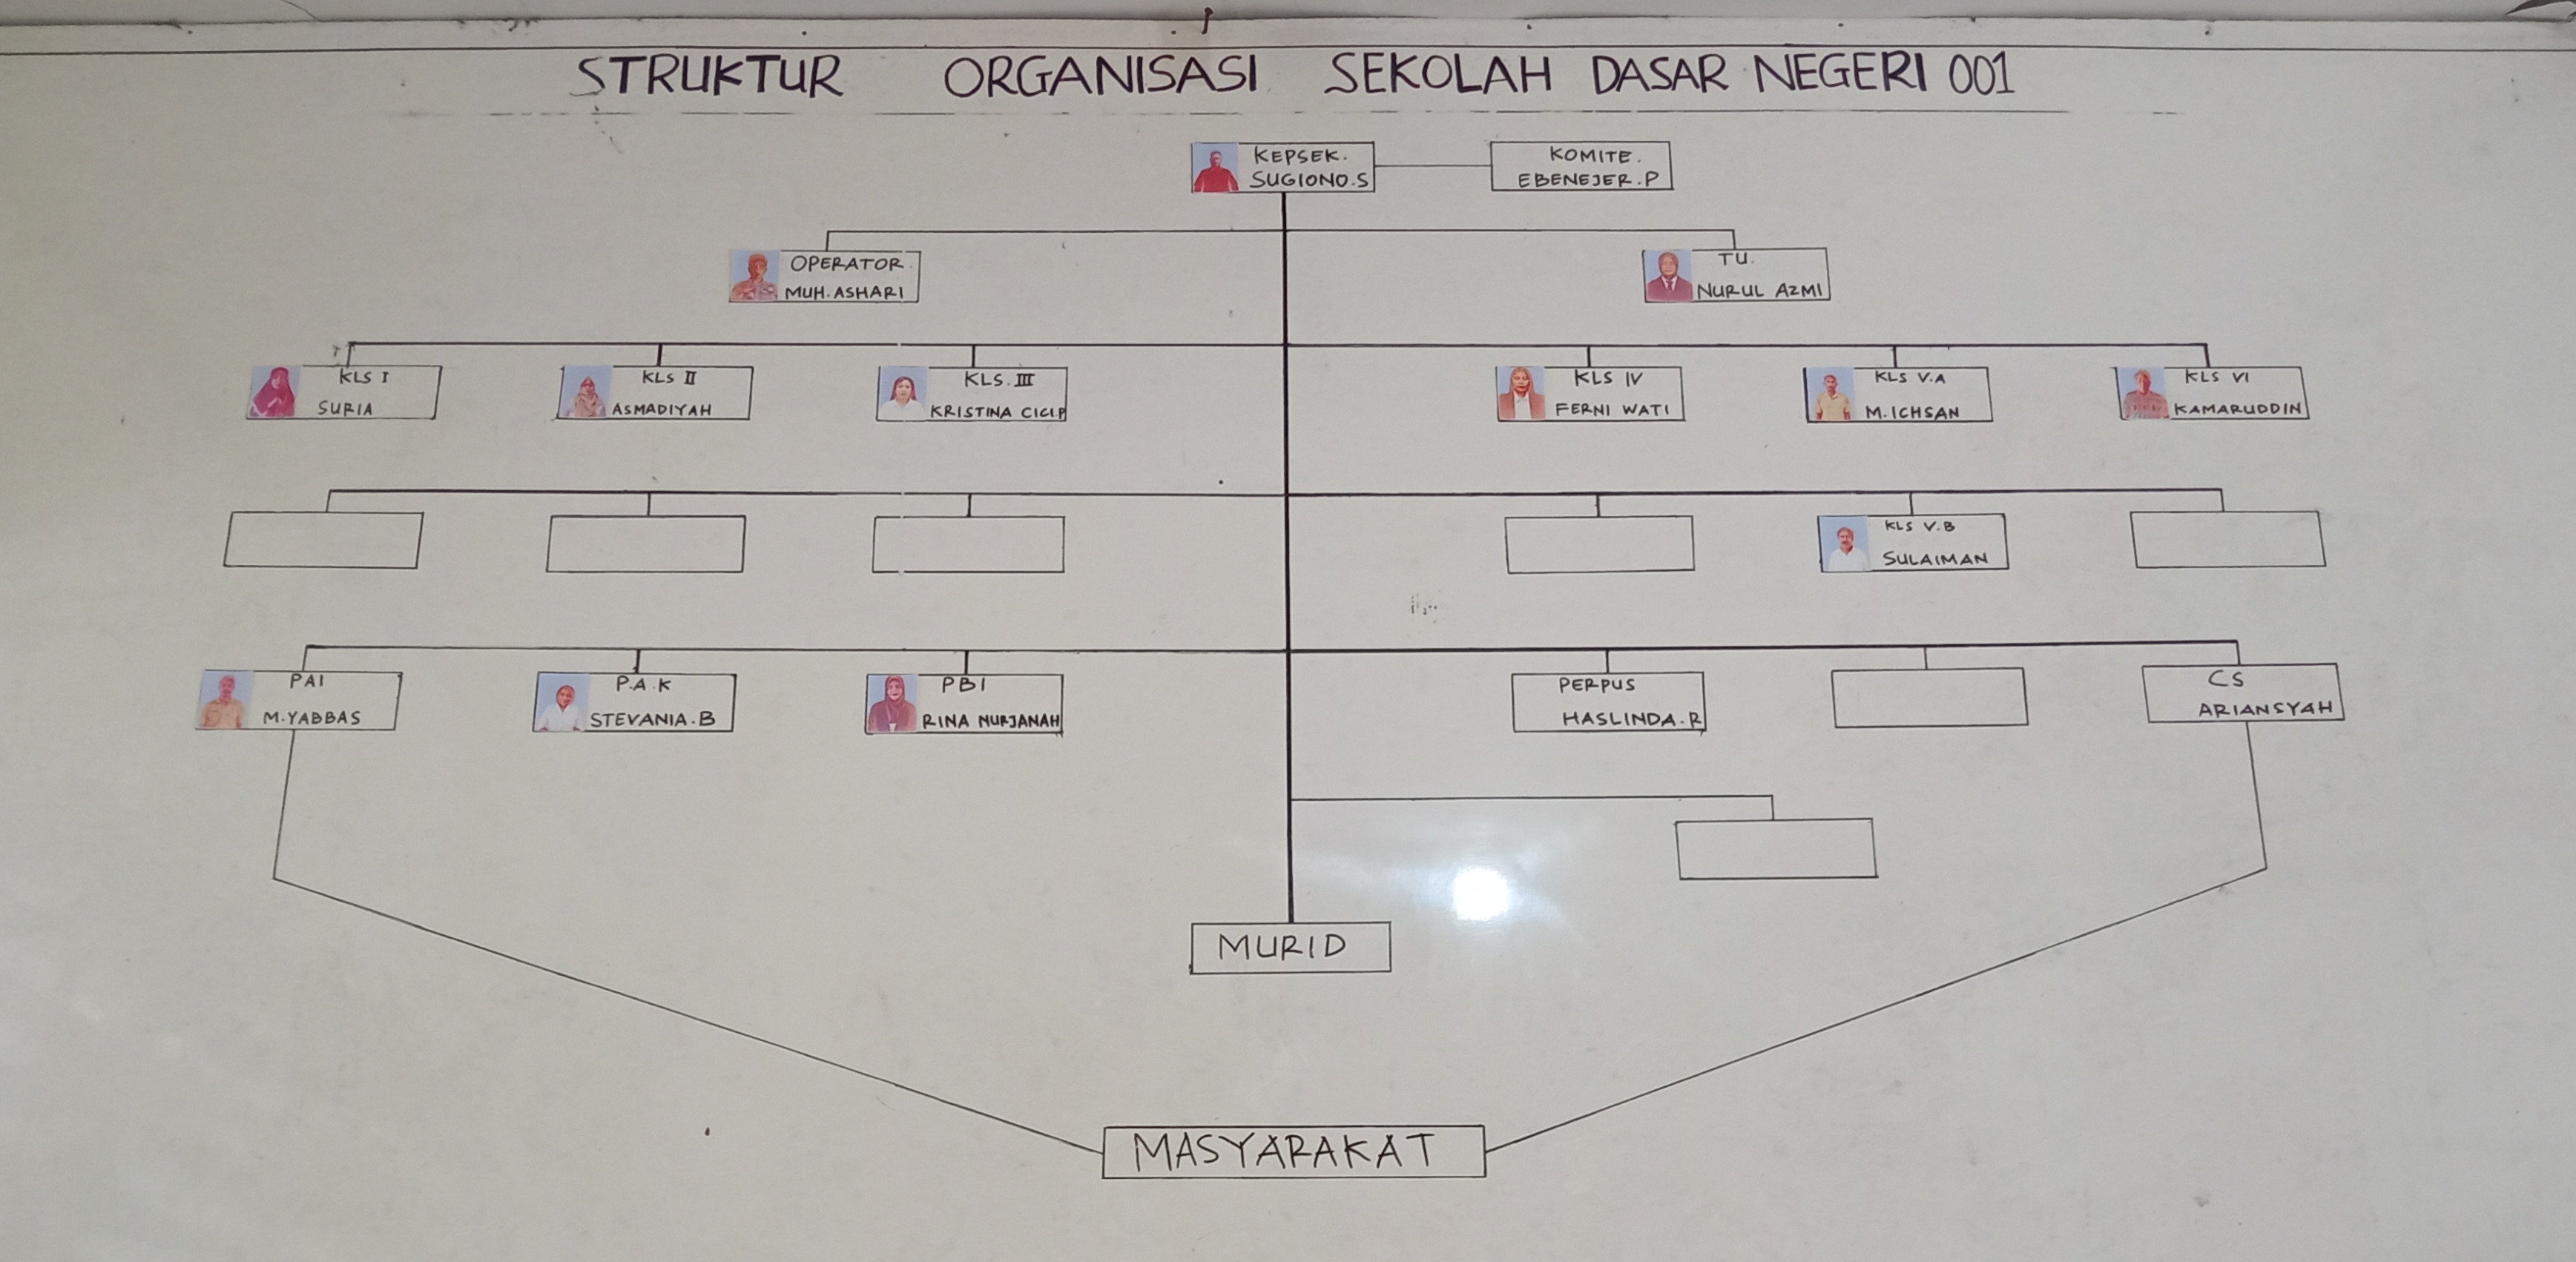 STRUKTUR ORGANISASI SEKOLAH DASAR NEGERI 001
KEPSEK.
SUGIONO.S
KOMITE.
EBENEJER.P
OPERATOR.
MUH.ASHARI
TU.
NURUL AZMI
KLS I
SURIA
KLS II
ASMADIYAH
KLS. III
KRISTINA CICI.P
KLS IV
FERNI WATI
KLS V.A
M.ICHSAN
KLS VI
KAMARUDDIN
KLS V.B
SULAIMAN
PAI
M.YABBAS
P.A.K
STEVANIA.B
PBI
RINA NURJANAH
PERPUS
HASLINDA.R
CS
ARIANSYAH
MURID
MASYARAKAT